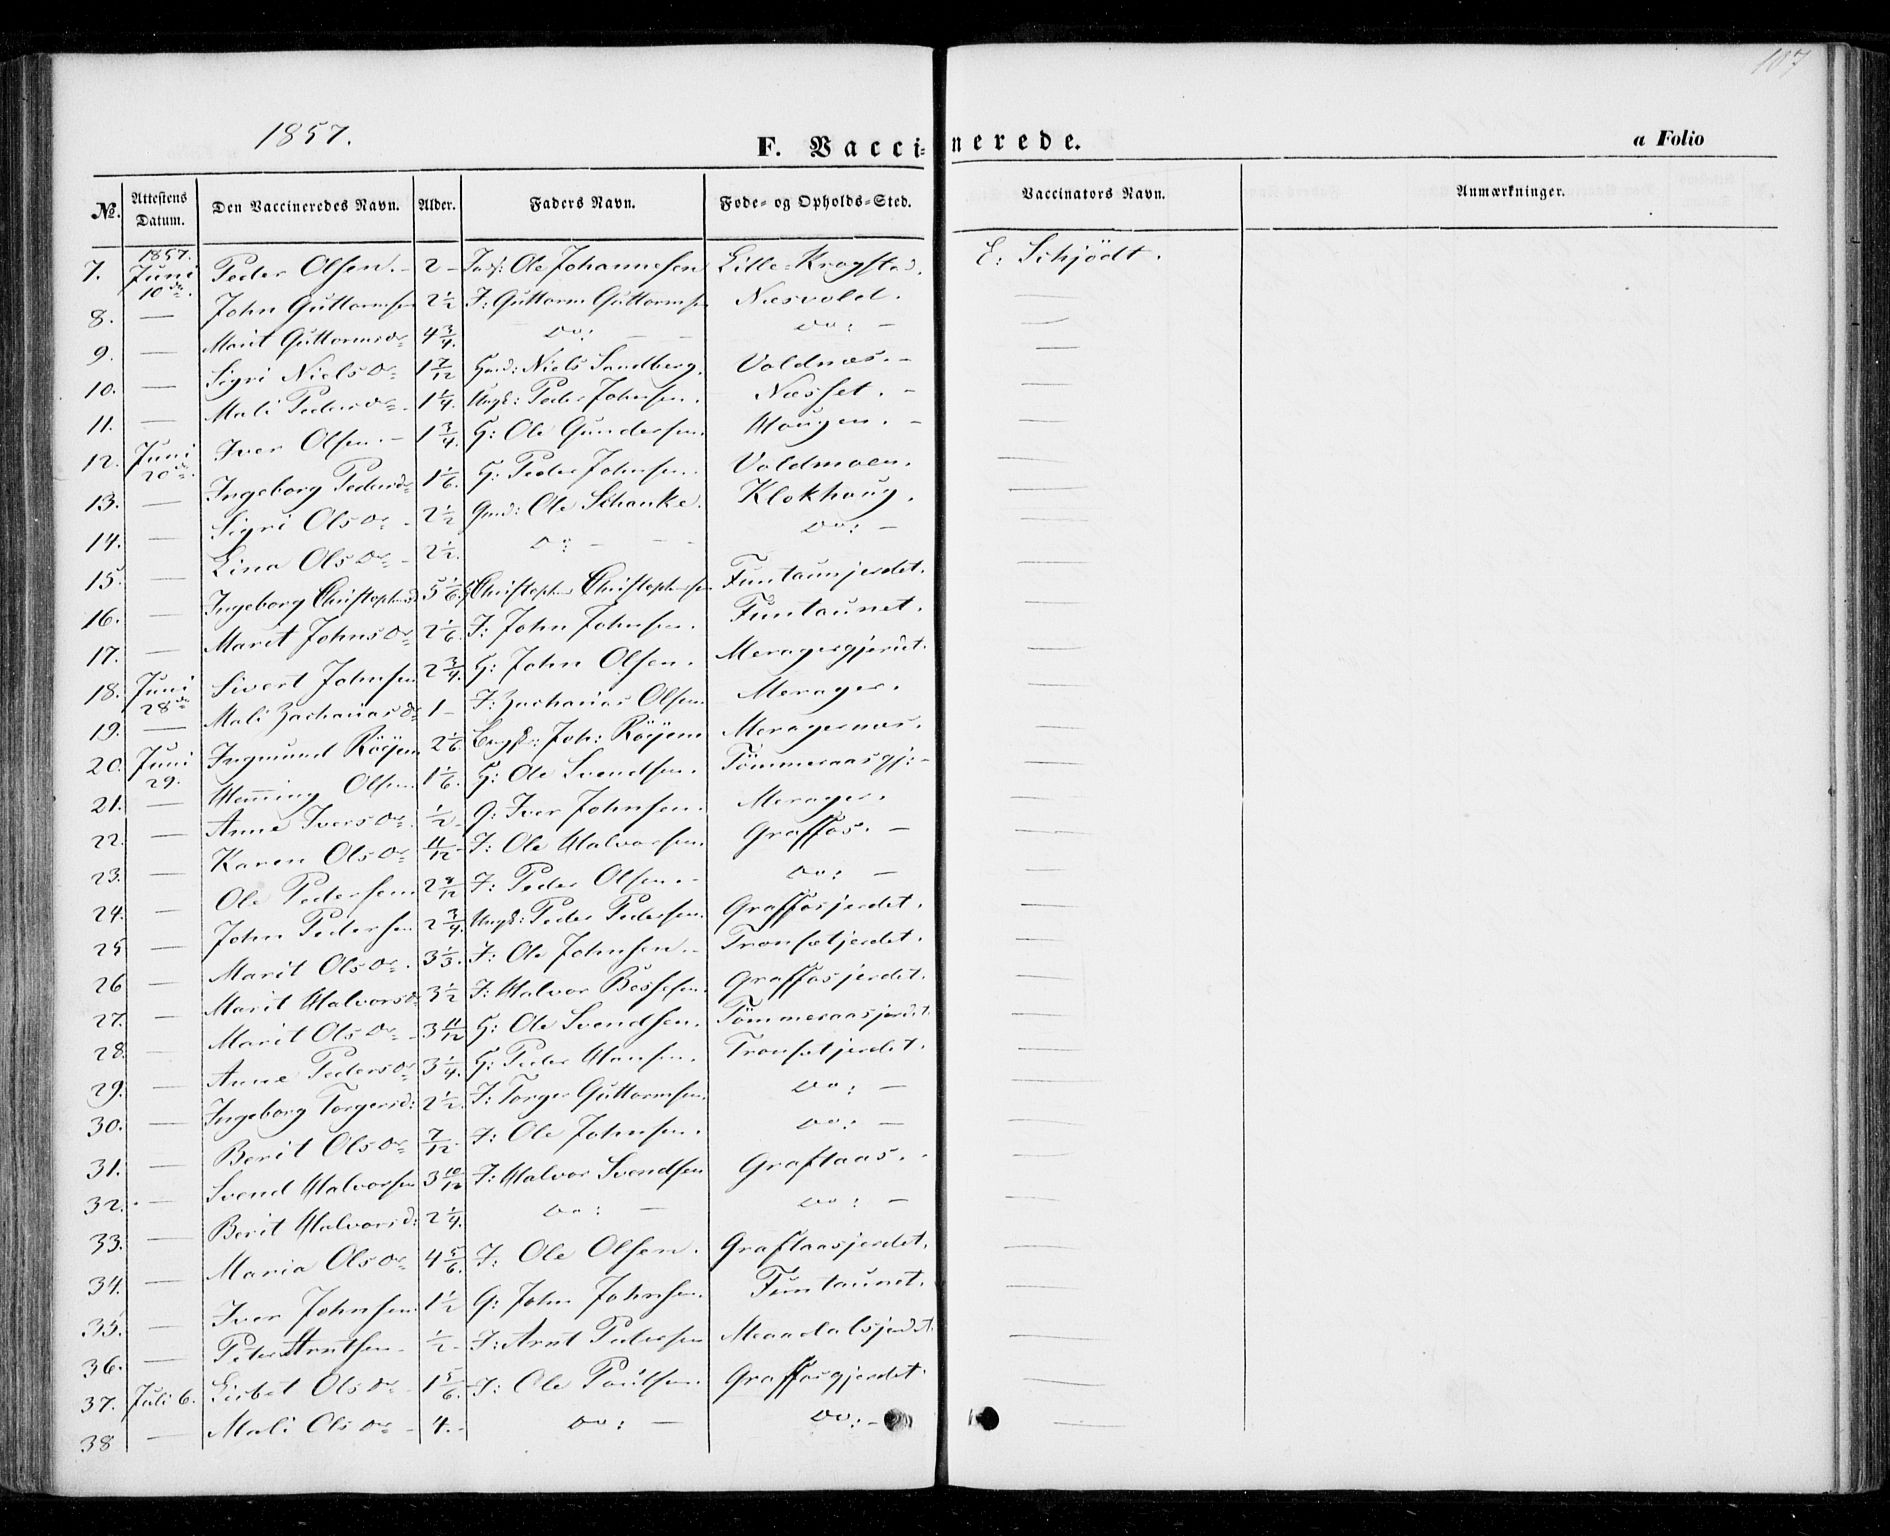 107
1857.
F. Vaccinerede.
a Folio
No. Attestens Datum. Den Vaccineredes Navn. Alder. Faders Navn. Føde- og Opholds-Sted. Vaccinators Navn. Anmærkninger.
7. 1857. Juni 10de. Peder Olsen. - 2 - Ole Johannesen Lille-Krogstad. E: Schjödt.
8. — John Guttormsen 2 1/2 F: Guttorm Guttormsen Næsvold. —
9. — Marit Guttormsdr 4 3/4. do: — — do: — —
10. — Sigri Nielsdr 1 7/12 Niels Sandberg. Voldnæs. - —
11. — Mali Pedersdr - 1 1/4. Ungk: Peder Johnsen. Næsset. - —
12. Juni 20de. Iver Olsen. - 1 3/4. G: Ole Gundersen. Hougen. - —
13. — Ingeborg Pedersdr 1 1/6. G: Peder Johnsen. Voldmoen. —
14. — Sigri Olsdr - 2 1/2 Gmd: Ole Schanke. Klokhoug. —
15. — Lina Olsdr - 2 1/2. do: - - - do: - —
16. — Ingeborg Christophersd 5 1/6. Christopher Christophersen Funtaunjerdet. —
17. — Marit Johnsdr 2 1/6. F: John Johnsen. Funtaunet. —
18. Juni 28de Sivert Johnsen 2 3/4. G: John Olsen. Meragergjerdet. —
19. — Mali Zachariasdr 1 - F: Zacharias Olsen Merager. —
20. Juni 29. Ingmund Röyem 2 1/6. Joh: Röyem Meragernæs. —
21. — Henning Olsen 1 1/6. G: Ole Svendsen. Tömmeraasgj: - —
22. — Anne Iversdr. 1/2 - G: Iver Johnsen. Merager. —
23. — Karen Olsdr 11/12 - F: Ole Halvorsen Graffos. - —
24. — Ole Pedersen 2 F: Peder Olsen. - do: — —
25 — John Pedersen 2 3/4. Ungk: Peder Pedersen. Graffosjerdet. —
26 — Marit Olsdr. 3 1/3. F: Ole Johnsen. - Tronsetjerdet. —
27. — Marit Halvorsdr 3 1/2 F: Halvor Bessesen. Graffosjerdet. —
28 — Marit Olsdr - 3 11/12 G: Ole Svendsen. Tömmeraasjerdet. —
29. — Anne Pedersdr 3 1/4. G: Peder Hansen. Tronsetjerdet. —
30. — Ingeborg Torgersd: 2 1/2. F: Torger Guttormsen. do: — —
31. — Berit Olsdr 7/12 - F: Ole Johnsen. do: — —
32. — Svend Halvorsen 3 10/12 F: Halvor Svendsen Graftaas. - —
33. — Berit Halvorsd: 2 1/4. do: — do: — —
34. — Maria Olsdr 4 5/6. F: Ole Olsen. Graftaasjerdet. —
35. — Iver Johnsen 1 1/2 G: John Johnsen. Funtaunet. —
36. — Peter Arntsen - 1/2 - F: Arnt Pedersen Meaadalsjerdet. —
37. Juli 6. Lisbet Olsdr - 1 5/6. F: Ole Poulsen. Graffosgjerdet. —
38 — Mali Olsdr - 4. - do: — do: - —